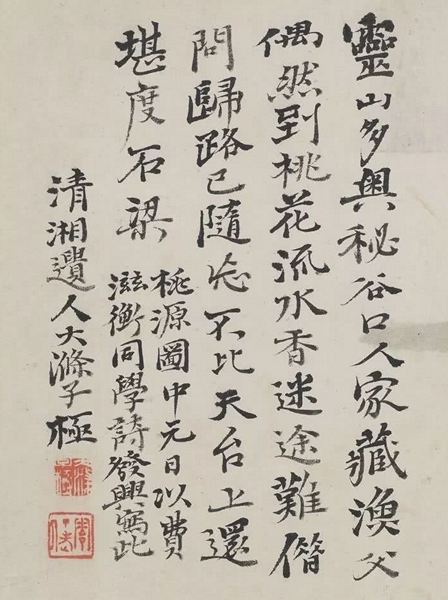 靈山多奧秘谷口人家藏漁父
偶然到桃花流水香迷途難借
問歸路已隨忘不比天台上還
堪度石梁
桃源圖中元日以費
滋衡同學詩發興寫此
清湘遺人大滌子極